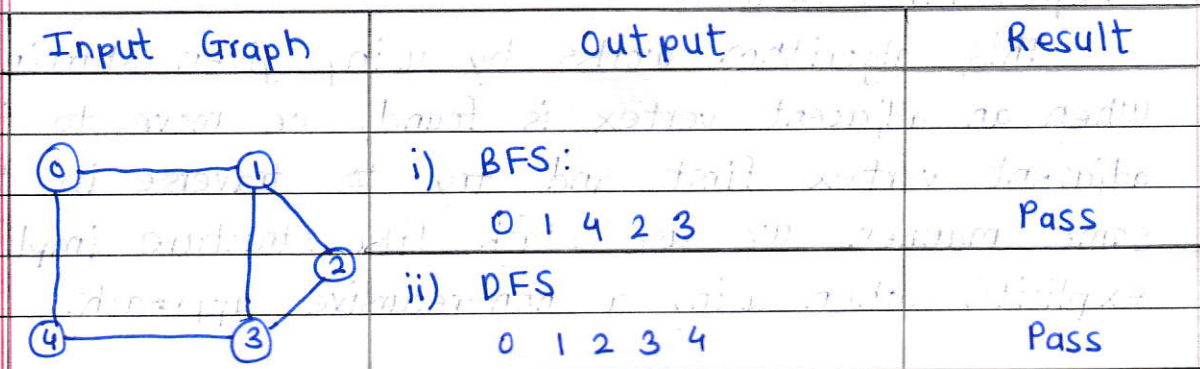 Input Graph Output Result
0 1 i) BFS:
0 1 4 2 3 Pass
2 ii) DFS
4 3 0 1 2 3 4 Pass